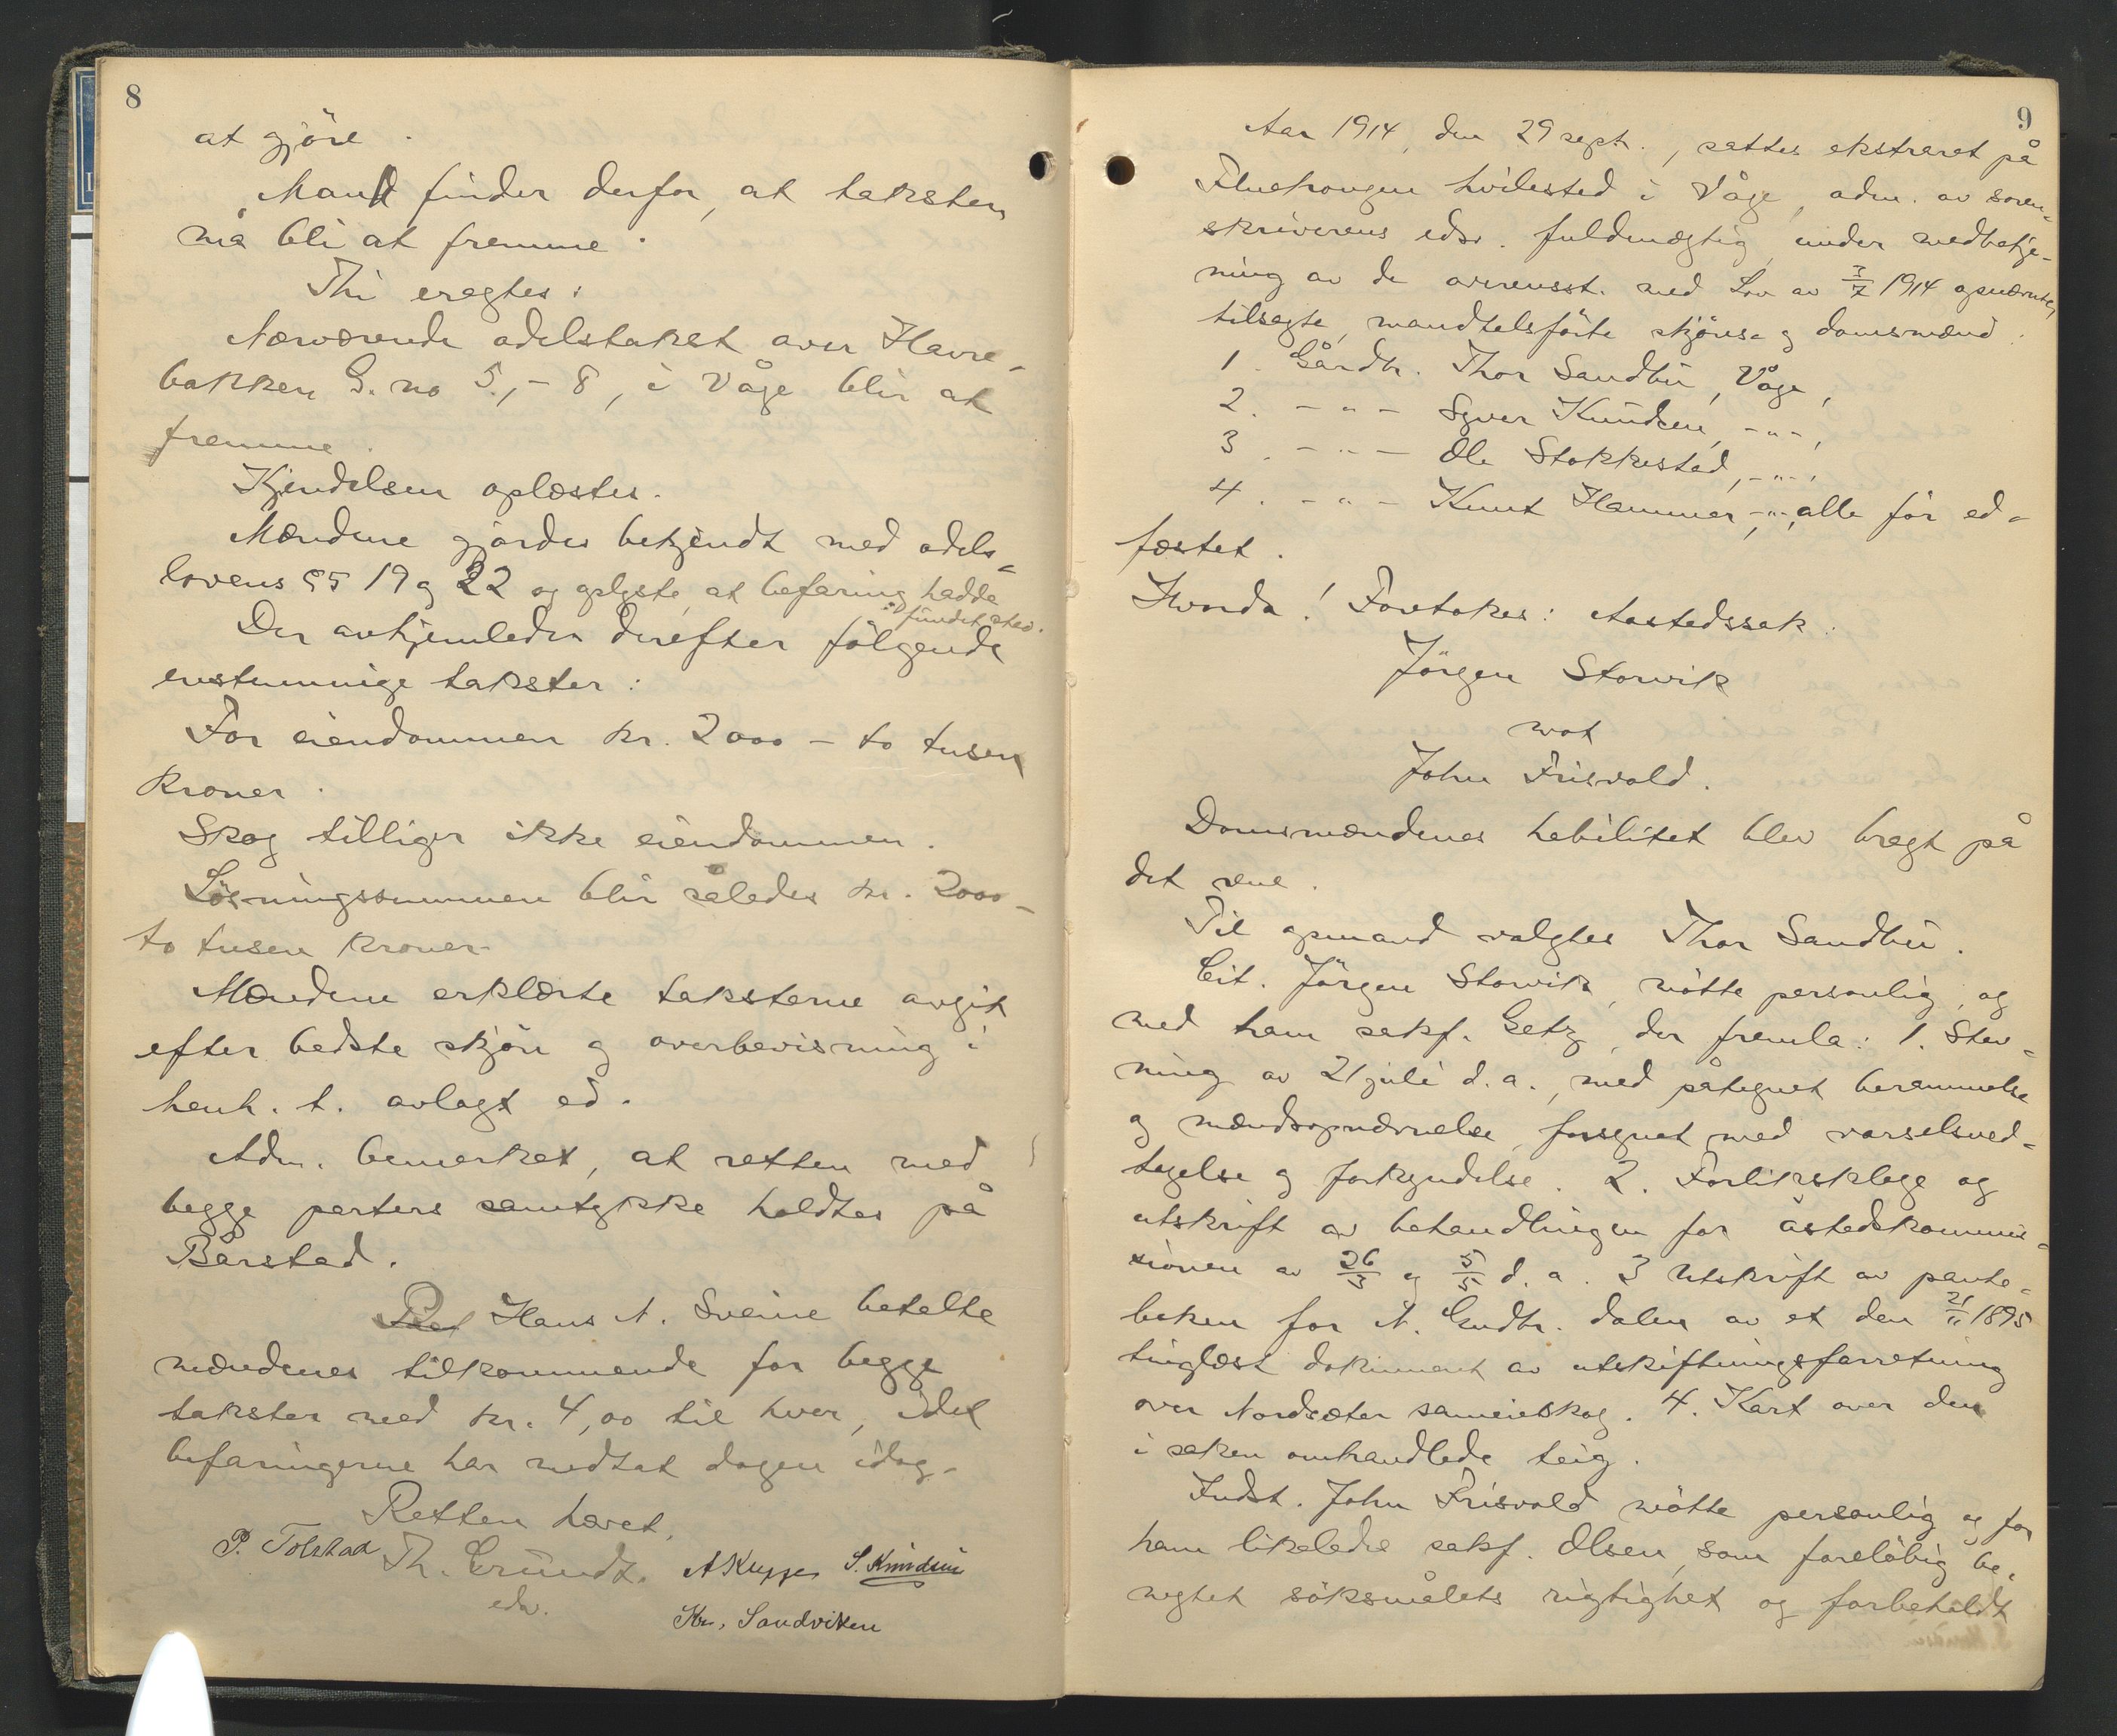 8
at gjöre.
Mand finder derfor, at taksten
må bli at fremme.
Thi eragtes:
Nærværende odelstakst over Havre-
bakken G. no 5,- 8, i Våge blir at
fremme.
Kjendelsen oplæstes.
Mændene gjordes bekjendt med odels-
lovens §§ 19 og 22 og oplyste, at befaring hadde
fundet sted.
Der avhjemledes derefter følgende
enstemmige takster:
For eiendommen kr. 2000 - to tusen
kroner.
Skog tilligger ikke eiendommen.
Løsningssummen blir således kr. 2000 -
to tusen kroner.
Mændene erklærte taksterne avgit
efter bedste skjön og overbevisning i
henh. t. avlagt ed.
Adm. bemerket, at retten med
begge parters samtykke holdtes på
Bårstad.
Hans N. Sveine betalte
mændenes tilkommende for begge
takster med kr. 4,00 til hver, idet
befaringerne har medtat dagen idag.
Retten hævet.
P. Tolstad Th. Gründt. A Kleppe S. Knudsen
edv.
Kr. Sandviken
9
Aar 1914, den 29 sept., sattes ekstraret på
hvilested i Våge, adm. av soren-
skriverens edsv. fuldmægtig under medbetje-
ning av de overensst. med Lov av 3/7 1914 opnævnte,
tilsagte, mandtalsförte skjöns- og domsmænd:
1. Gårdbr. Thor Sandbu, Våge,
2. -"- Syver Knudsen, -"-,
3. -"- Ole Stokkestad, -"-,
4. -"- Knut Hammer, -"-, alle för ed-
fæstet.
Hvorda! Foretokes: Aastedssak:
Jörgen Storvik
mot
John Frisvold.
Domsmændenes habilitet blev bragt på
det rene.
Til opmand valgtes Thor Sandbu.
Cit. Jörgen Storvik, mötte personlig, og
med ham sakf. Getz, der fremla: 1. Stev-
ning av 21 juli d. a., med påtegnet berammelse
og mændsopnævnelse, forsynet med varselsved-
tagelse og forkyndelse. 2. Forliksklage og
utskrift av behandlingen for åstedskommis-
sionen av 26/3 og 5/5 d. a. 3 Utskrift av pante-
boken for N. Gudbr. dalen av et den 21/11 1895
tinglæst dokument av utskiftningsforretning
over Nordsæter sameieskog. 4. Kart over den
i saken omhandlede teig.
Indst. John Frisvold mötte personlig og for
ham likeledes sakf. Olsen, som foreløbig be-
negtet söksmålets rigtighet og forbeholdt